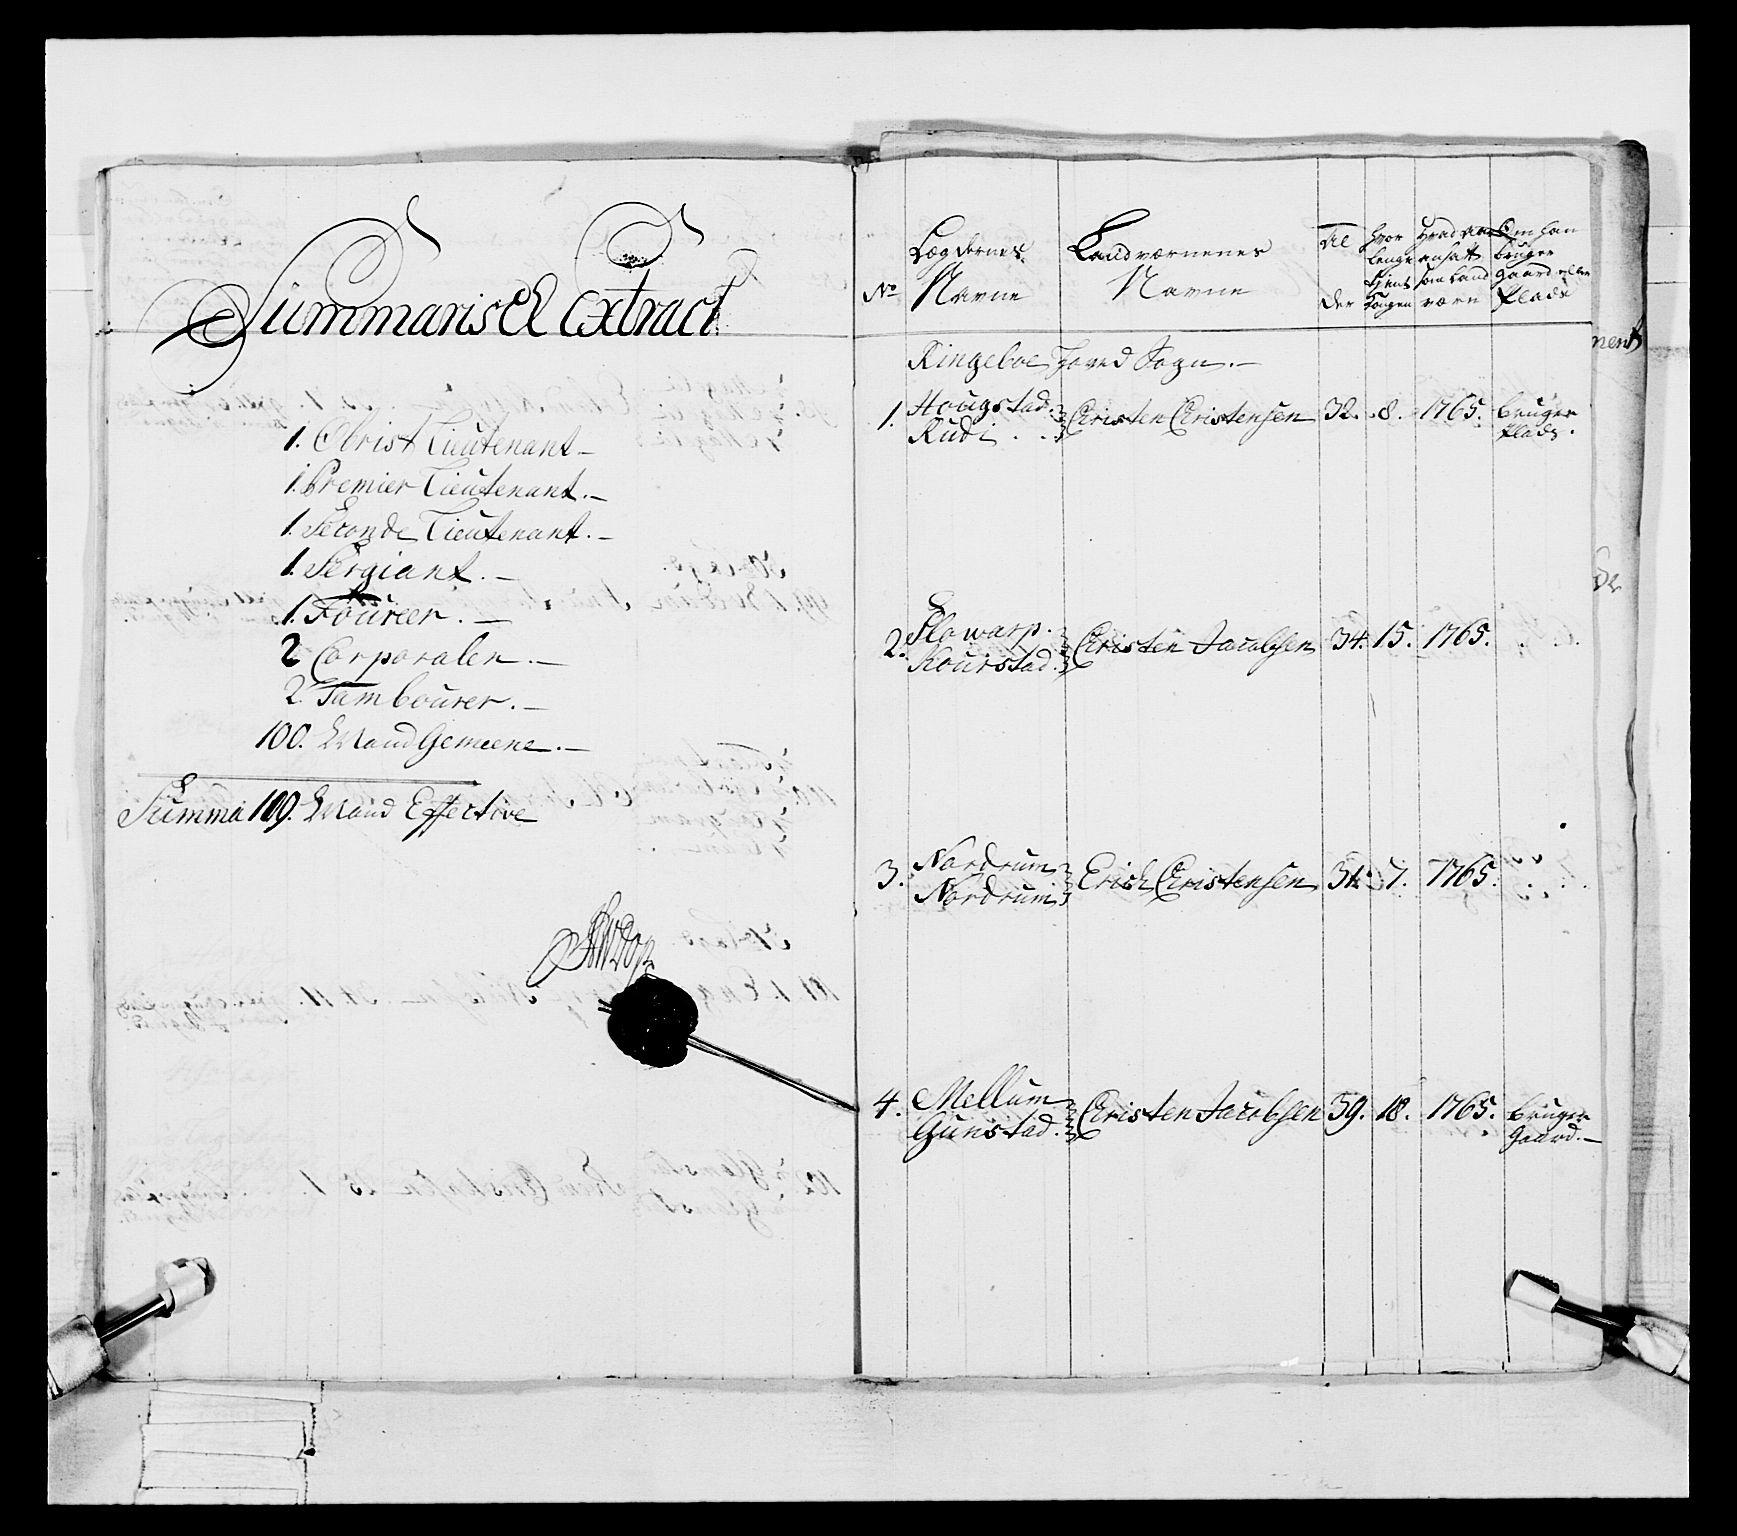 Summarisch Extract
1. Obrist Lieutenant
1. Premier Lieutenant.
1. Seconde Lieutenant.
1. Sergiant.
1. Foureer.
2 Corporaler.
2. Tambourer.
100. Mand Gemeene.
Summa 109. Mand Effective
No Lægdernes Navne Landværnenes Navne
Alder
Hvor længe tjent Kongen
Hvad Aar ansatt som Landværn
Om han bruger Gaard eller Plads
Ringeboe Hoved Sogn.
1. Hougstad. Rudi. Christen Christensen 32. 8. 1765. bruger Plads.
2. Flowarp. Kourstad. Christen Jacobsen 34. 15. 1765.
3. Nordrum Nordrum Erich Christensen 7. 1765.
4. Mellum Gunstad. Christen Jacobsen 39. 18. 1765. bruger Gaard.